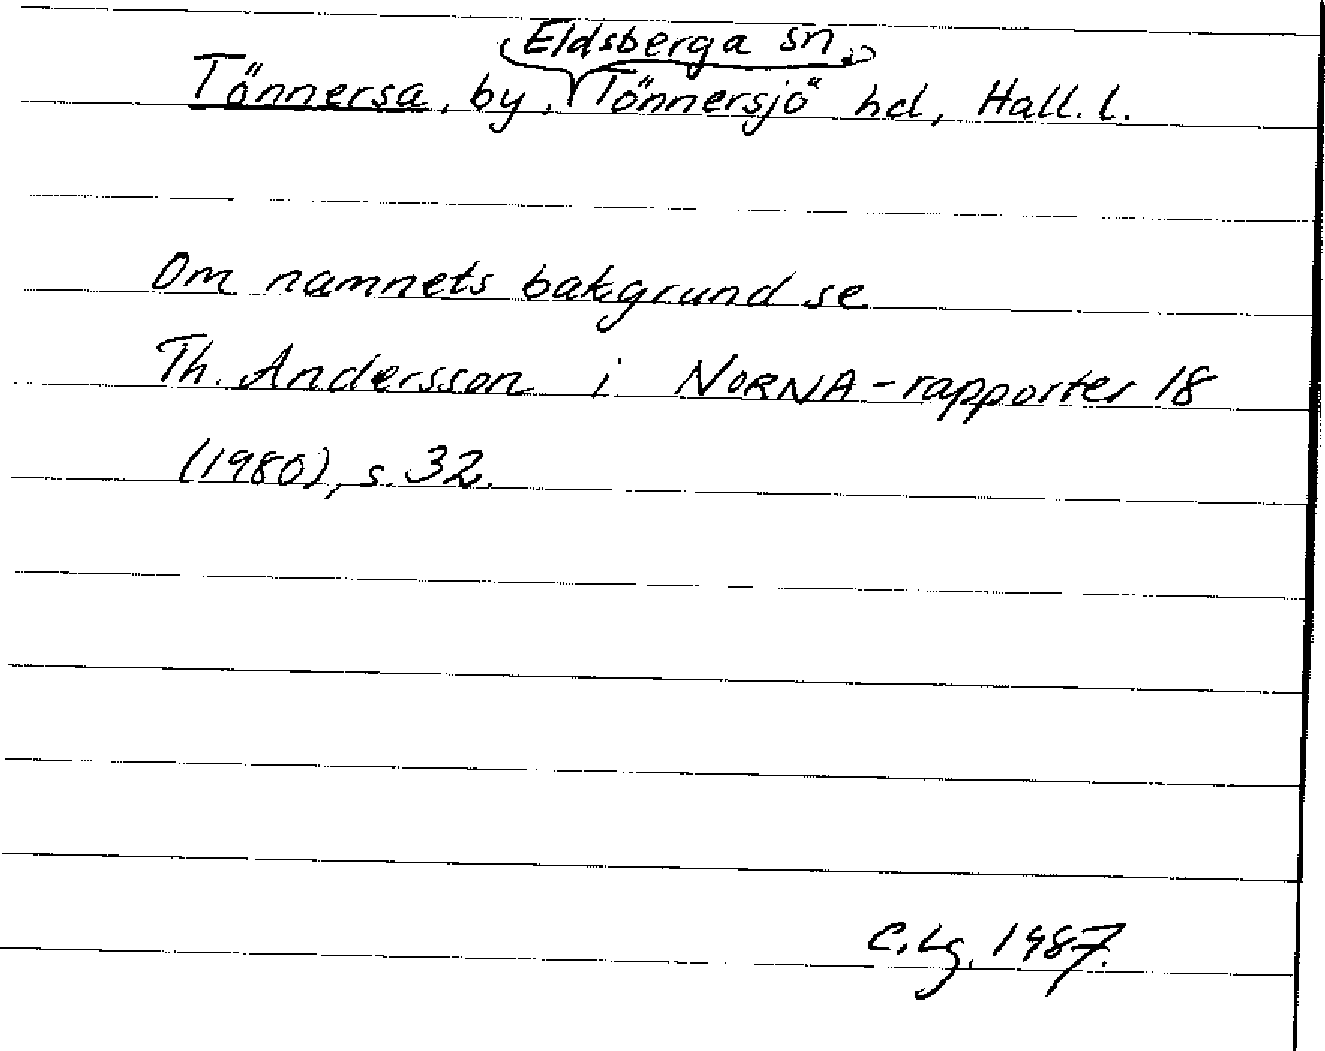 Eldsberga sn,
Tönnersa, by, Tönnersjö hd, Hall. l.
Om namnets bakgrund se
Th. Andersson i NORNA-rapporter 18
(1980), s. 32.
C. Lg. 1987.